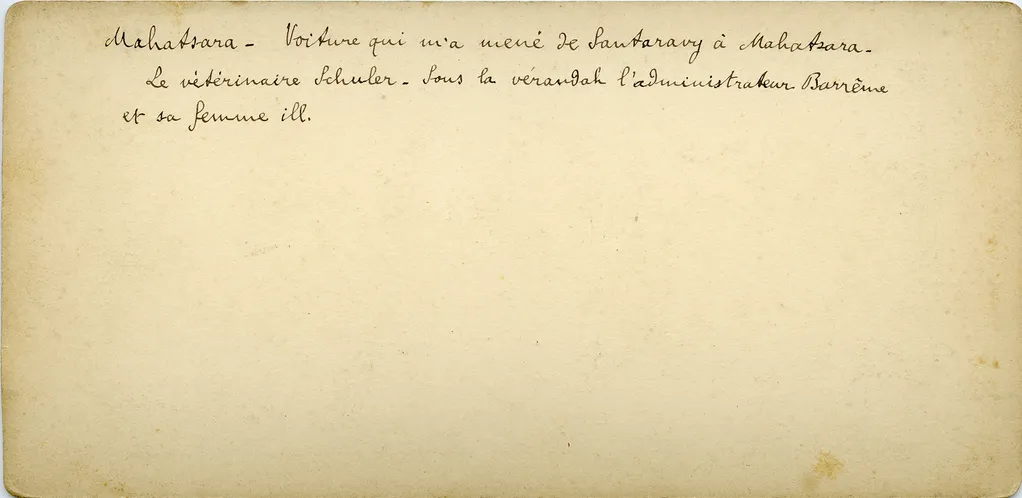 Mahatsara - Voiture qui m'a mené de Santaravy à Mahatsara -
Le vétérinaire Schuler - Sous la vérandah l'administrateur Barrême
et sa femme ill.